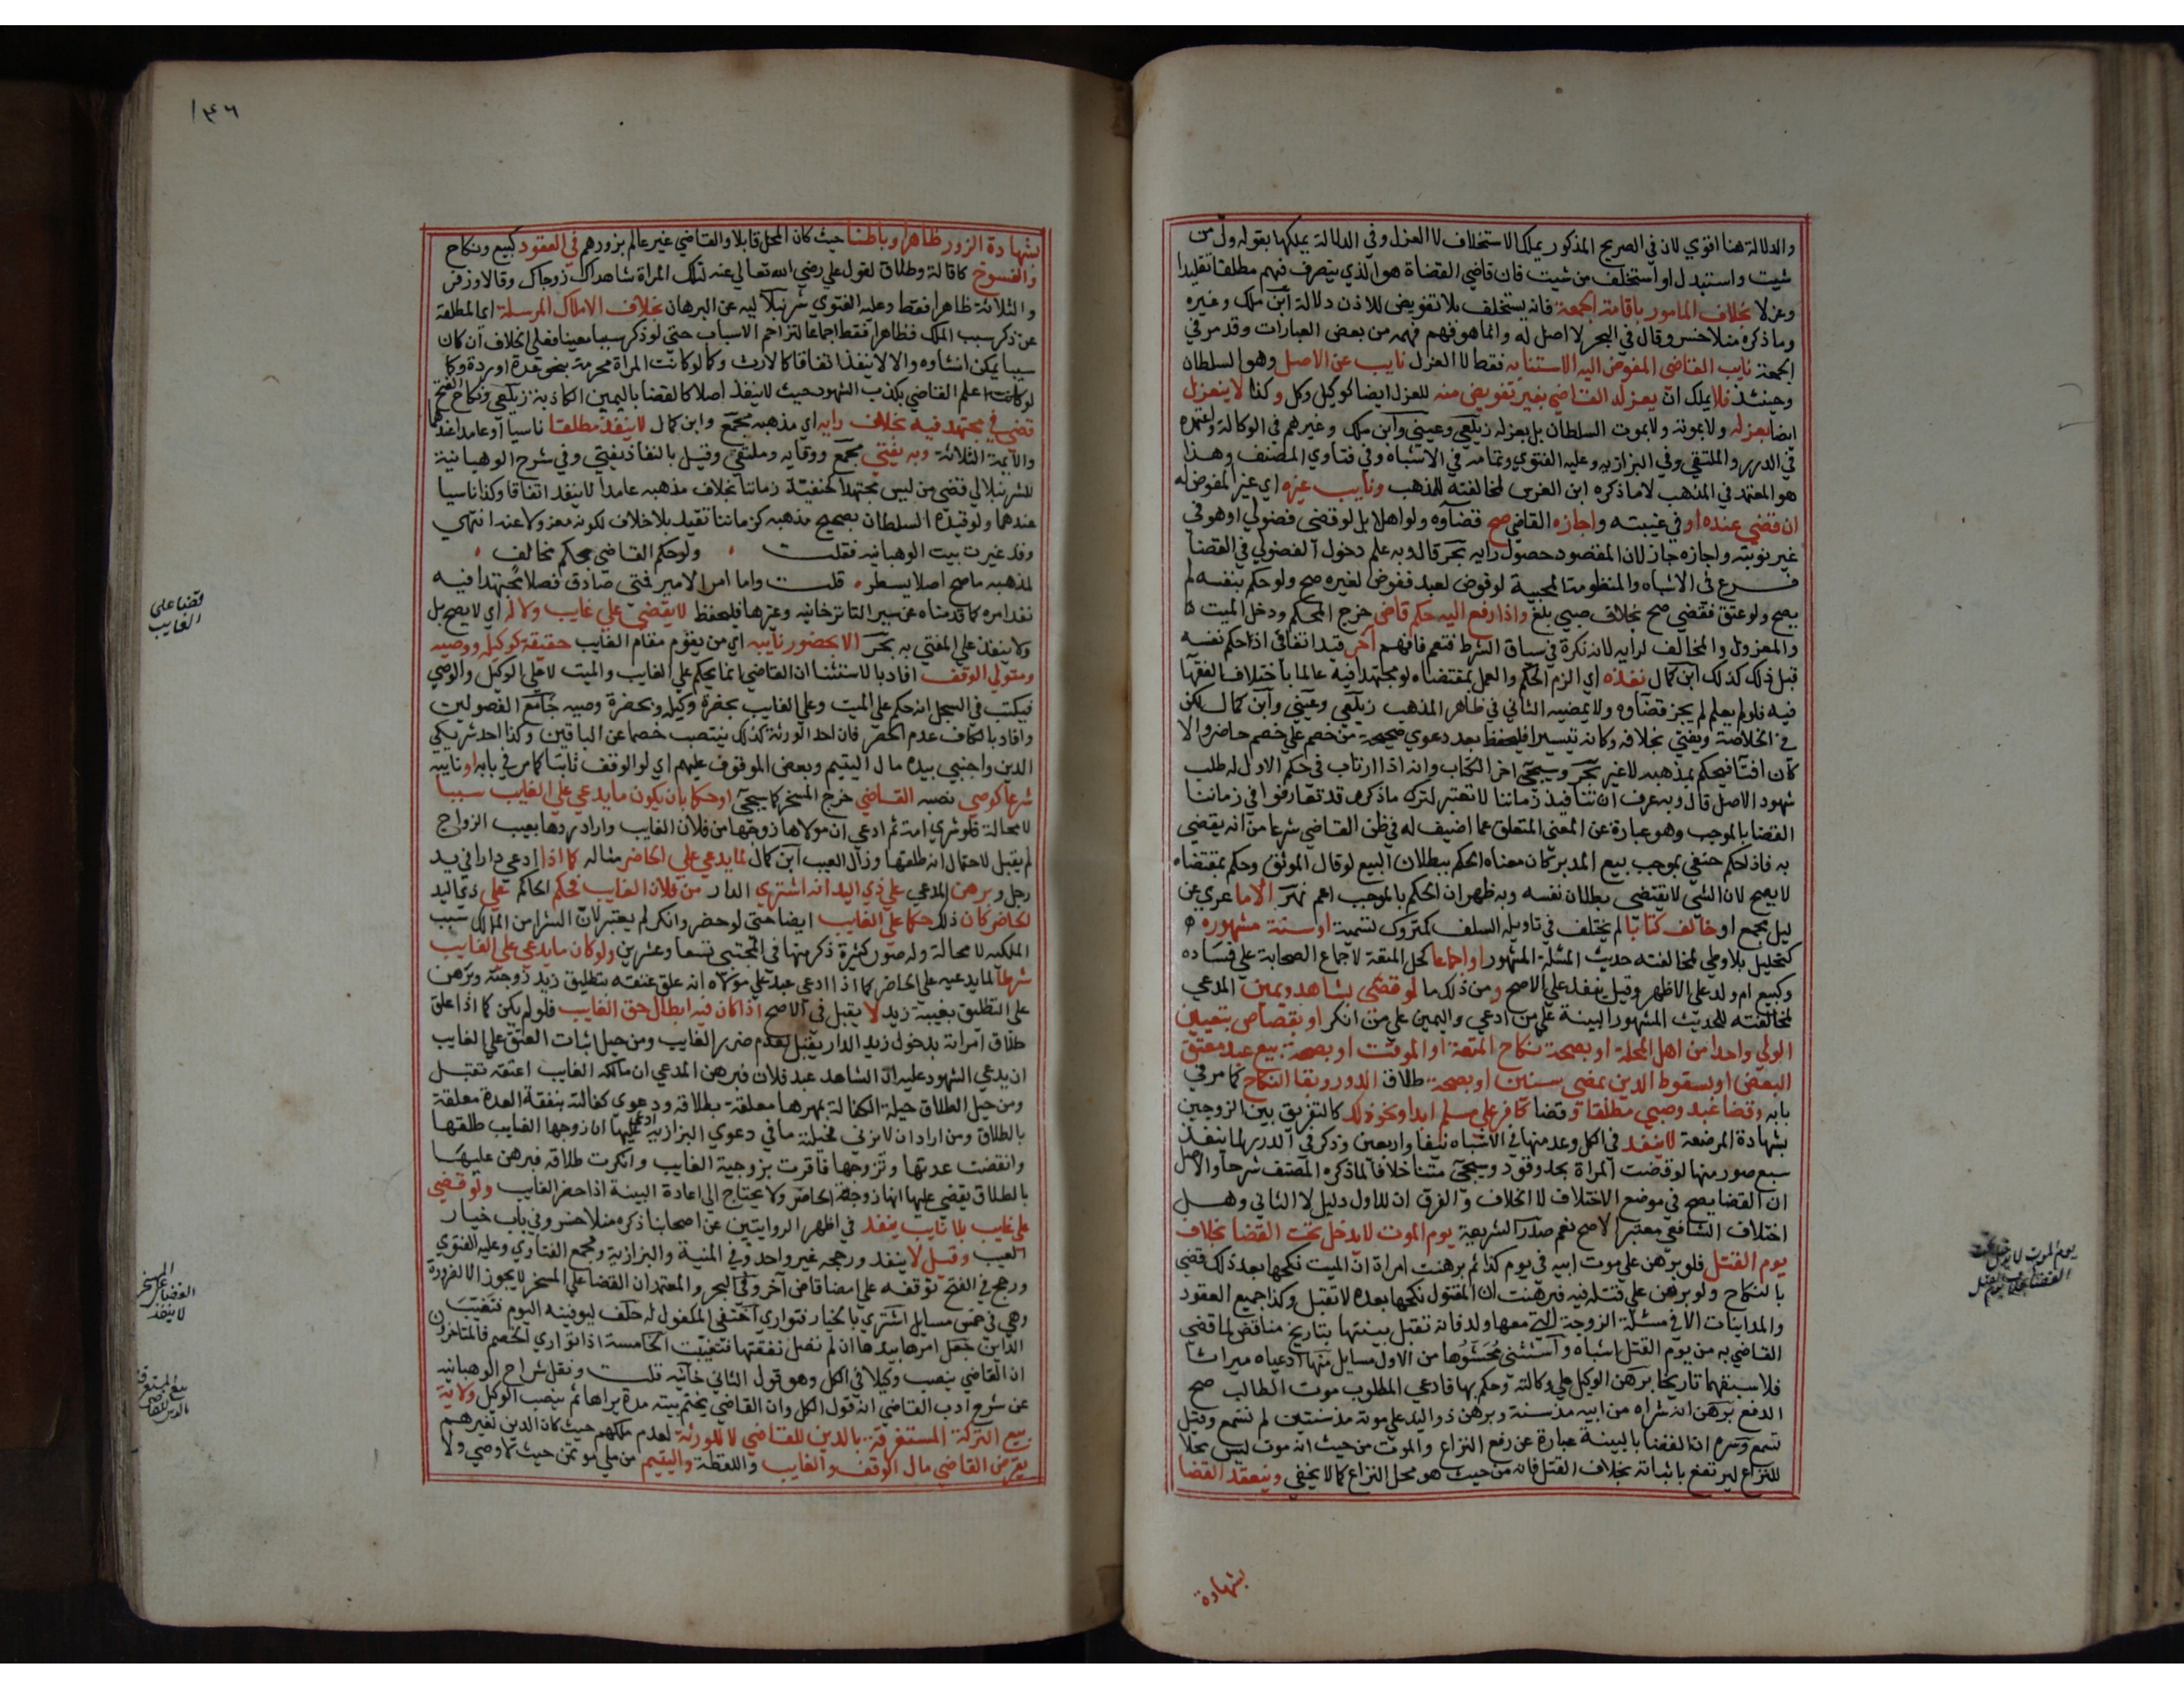 والدلالة هنا اقوي لان في الصريح المذكور يملك الاستخلاف لا العزل وفي الدلالة يملكها بقوله ول من
شيت واستبدل او استخلف من شيت فان قاضي القضاة هو الذي يتصرف فيهم مطلقا تقليدا
وعزلا بخلاف المامور باقامة الجمعة فانه يستخلف بلا تفويض للاذن دلالة ابن ملك وغيره
وما ذكره منلا خسرو قال في البحر لا اصل له وانما هو فهم فهمه من بعض العبارات وقد مر في
الجمعة نايب القاضي المفوض اليه الاستنابة فقط لا العزل نايب عن الاصل وهو السلطان
وحينئذ فلا يملك ان يعزله القاضي بغير تفويض منه للعزل ايضا كوكيل وكل وكذا لا ينعزل
ايضا بعزله ولا بموته ولا بموت السلطان بل بعزله زيلعي وعيني وابن ملك وغيرهم في الوكالة واعتمده
في الدرر والملتقي وفي البزازيه وعليه الفتوي وتمامه في الاشباه وفي فتاوي المصنف وهذا
هو المعتمد في المذهب لا ما ذكره ابن الغرس لمخالفته للمذهب ونايب غيره اي غير المفوض له
ان قضي عنده او في غيبته واجازه القاضي صح قضاؤه ولو اهلا بل لو قضي فضولي او هو في
غير نوبته واجازه جاز لان المقصود حصول رايه بحر قال وبه علم دخول الفضولي في القضا
فرع في الاشباه والمنظومة المحبية لو فوض لعبد ففوض لغيره صح ولو حكم بنفسه لم
يصح ولو عتق فقضي صح بخلاف صبي بلغ واذا رفع اليه حكم قاضي خرج المحكم ودخل الميت
والمعزول والمخالف لرايه لانه نكرة في سياق الشرط فتعم فافهم آخر قيد اتفاقي اذ حكم نفسه
قبل ذلك كذلك ابن كمال نفذه اي الزم الحكم والعمل بمقتضاه لو مجتهدا فيه عالما باختلاف الفقها
فيه فلو لم يعلم لم يجز قضاؤه ولا يمضيه الثاني في ظاهر المذهب زيلعي وعيني وابن كمال لكن
في الخلاصة ويفتي بخلافه وكانه تيسيرا فليحفظ بعد دعوي صحيحة من خصم علي خصم حاضر والا
كان افتا فيحكم بمذهبه لا غير بحر وسيجئ اخر الكتاب وانه اذا ارتاب في حكم الاول له طلب
شهود الاصل قال وبه عرف ان تنافيذ زماننا لا تعتبر لترك ما ذكر وقد تعارفوا في زماننا
القضا بالموجب وهو عبارة عن المعني المتعلق بما اضيف له في ظن القاضي شرعا من انه يقضي
به فاذا حكم حنفي بموجب بيع المدبر كان معناه الحكم ببطلان البيع لو قال الموثق وحكم بمقتضاه
لا يصح لان الشي لا يقتضي بطلان نفسه وبه ظهر ان الحكم بالموجب اعم نهر الا ما عري عن
ليل مجمع او خالف كتابا لم يختلف في تاويله السلف كمتروك تسمية او سنة مشهوره
كتحليل بلا وطي لمخالفته حديث المشلة المشهور او اجماعا كحل المتعة لاجماع الصحابة علي فساده
وكبيع ام ولد علي الاظهر وقيل ينفذ علي الاصح ومن ذلك ما لو قضي بشاهد ويمين المدعي
لمخالفته للحديث المشهور البينة علي من ادعي واليمين علي من انكر او بقصاص بتعيين
الولي واحدا من اهل المحلة او بصحة نكاح المتعة او الموقت او بصحة بيع عبد معتق
البعض او بسقوط الدين بمضي سنين او بصحة طلاق الدور وبقا النكاح كما مر في
بابه وقضا عبد وصبي مطلقا وقضا كافر علي مسلم ابدا ونحو ذلك كالتفريق بين الزوجين
بشهادة المرضعة لا ينفذ في الكل وعد منها في الاشباه نيفا واربعين وذكر في الدرر لما ينفذ
سبع صور منها لو قضت المراة بحد وقود وسيجئ متنا خلافا لما ذكره المصنف شرحا والاصل
ان القضا يصح في موضع الاختلاف لا الخلاف والفرق ان للاول دليل لا الثاني وهل
اختلاف الشافعي معتبر الاصح نعم صدر الشريعة يوم الموت لا يدخل تحت القضا بخلاف
يوم القتل فلو برهن علي موت ابيه في يوم كذا ثم برهنت امراة ان الميت نكحها بعد ذلك قضي
بالنكاح ولو برهن علي قتله فيه فبرهنت ان المقتول نكحها بعده لا تقبل وكذا جميع العقود
والمداينات الا في مسئلة الزوجة التي معها ولد فانه تقبل بينتها بتاريخ مناقض لما قضي
القاضي به من يوم القتل اشباه واستثني محشوها من الاول مسايل منها ادعياه ميراثا
فلا سبقهما تاريخا برهن الوكيل علي وكالته وحكم بها فادعي المطلوب موت الطالب صح
الدفع برهن انه شراه من ابيه مذ سنة وبرهن ذو اليد علي موته مذ سنتين لم تسمع وقيل
تسمع وسره ان القضا بالبينة عبارة عن رفع النزاع والموت من حيث انه موت ليس محلا
للنزاع ليرتفع باثباته بخلاف القتل فانه من حيث هو محل النزاع كما لا يخفي وينعقد القضا
بشهادة
يوم الموت لا يدخل تحت
القضا بخلاف يوم القتل
١٤٦
بشهادة الزور ظاهرا وباطنا حيث كان المحل قابلا والقاضي غير عالم بزورهم في العقود كبيع ونكاح
والفسوخ كاقالة وطلاق لقول علي رضي الله تعالي عنه لتلك المراة شاهداك زوجاك وقالا وزفر
والثلاثة ظاهرا فقط وعليه الفتوي شرنبلاليه عن البرهان بخلاف الاملاك المرسلة اي المطلقة
عن ذكر سبب الملك فظاهرا فقط اجماعا لتزاحم الاسباب حتي لو ذكر سببا معينا فعلي الخلاف ان كان
سببا يمكن انشاوه والا لا ينفذ اتفاقا كالارث وكما لو كانت المراة محرمة بنحو عدة او ردة وكما
لو علم القاضي بكذب الشهود حيث لا ينفذ اصلا كالقضا باليمين الكاذبة زيلعي ونكاح الفتح
قضي في مجتهد فيه بخلاف رايه اي مذهبه مجمع وابن كمال لا ينفذ مطلقا ناسيا او عامدا عندهما
والايمة الثلاثة وبه يفتي مجمع ووقايه وملتقي وقيل بالنفاذ يفتي وفي شرح الوهبانية
للشرنبلالي قضي من ليس مجتهدا كحنفية زماننا بخلاف مذهبه عامدا لا ينفذ اتفاقا وكذا ناسيا
عندهما ولو قيده السلطان بصحيح مذهبه كزماننا تقيد بلا خلاف لكونه معزولا عنه انتهي
وقد غيرت بيت الوهبانيه فقلت ولو حكم القاضي بحكم مخالف
لمذهبه ما صح اصلا يسطر قلت واما امر الامير فمتي صادق فصلا مجتهدا فيه
نفذ امره كما قدمناه عن سير التاترخانيه وغيرها فليحفظ لا يقضي علي غايب ولا له اي لا يصح بل
ولا ينفذ علي المفتي به بحر الا بحضور نايبه اي من يقوم مقام الغايب حقيقة كوكيله ووصيه
ومتولي الوقف افاد بالاستثنا ان القاضي انما يحكم علي الغايب والميت لا علي الوكيل والوصي
فيكتب في السجل انه حكم علي الميت وعلي الغايب بحضرة وكيله وبحضرة وصيه جامع الفصولين
وافاد بالكاف عدم الحصر فان احد الورثة كذلك ينتصب خصما عن الباقين وكذا احد شريكي
الدين واجنبي بيده مال اليتيم وبعض الموقوف عليهم اي لو الوقف ثابتا كما مر في بابه او نايبه
شرعا كوصي نصبه القاضي خرج المسخر كما سيجئ او حكما بان يكون ما يدعي علي الغايب سببا
لا محالة فلو شري امة ثم ادعي ان مولاها زوجها من فلان الغايب واراد ردها بعيب الزواج
لم يقبل لاحتمال انه طلقها وزال العيب ابن كمال لما يدعي علي الحاضر مثاله كما اذا ادعي دارا في يد
رجل وبرهن المدعي علي ذي اليد انه اشتري الدار من فلان الغايب فحكم الحاكم علي ذي اليد
الحاضر كان ذلك حكما علي الغايب ايضا حتي لو حضر وانكر لم يعتبر لان الشرا من المالك سبب
الملكيه لا محالة وله صور كثيرة ذكر منها في المجتبي تسعا وعشرين ولو كان ما يدعي علي الغايب
شرطا لما يدعيه علي الحاضر كما اذا ادعي عبد علي مولاه انه علق عتقه بتطليق زيد زوجته وبرهن
علي التطليق بغيبة زيد لا يقبل في الاصح اذا كان فيه ابطال حق الغايب فلو لم يكن كما اذا علق
طلاق امراته بدخول زيد الدار يقبل لعدم ضرر الغايب ومن حيل اثبات العتق علي الغايب
ان يدعي الشهود عليه ان الشاهد عبد فلان فبرهن المدعي ان مالكه الغايب اعتقه تقبل
ومن حيل الطلاق حيلة الكفالة بمهرها معلقة بطلاقه ودعوي كفالته بنفقة العدة معلقة
بالطلاق ومن اراد ان لا يزني فحيلته ما في دعوي البزازيه ادعي عليها ان زوجها الغايب طلقها
وانقضت عدتها وتزوجها فاقرت بزوجية الغايب وانكرت طلاقه فبرهن عليها
بالطلاق يقضي عليها انها زوجة الحاضر ولا يحتاج الي اعادة البينة اذا حضر الغايب ولو قضي
علي غايب بلا نايب ينفذ في اظهر الروايتين عن اصحابنا ذكره منلا خسرو في باب خيار
العيب وقيل لا ينفذ ورجحه غير واحد وفي المنية والبزازية ومجمع الفتاوي وعليه الفتوي
ورجح في الفتح توقفه علي امضا قاض آخر وفي البحر والمعتمد ان القضا علي المسخر لا يجوز الا لضرورة
وهي في خمس مسايل اشتري بالخيار فتواري اختفي المكفول له حلف ليوفينه اليوم فتغيب
الداين جعل امرها بيدها ان لم تصل نفقتها فتغيبت الخامسة اذا تواري الخصم فالمتاخرون
ان القاضي ينصب وكيلا في الكل وهو قول الثاني خانيه قلت ونقل شراح الوهبانيه
عن شرح ادب القاضي انه قول الكل وان القاضي يختم بيته مدة يراها ثم ينصب الوكيل ولاية
بيع التركة المستغرقة بالدين للقاضي لا للورثة لعدم ملكهم حيث كان الدين لغيرهم
يقرض القاضي مال الوقف والغايب واللقطة واليتيم من ملي موتمن حيث لا وصي ولا
قضا علي
الغايب
المسخر
القضا علي
لا ينفذ